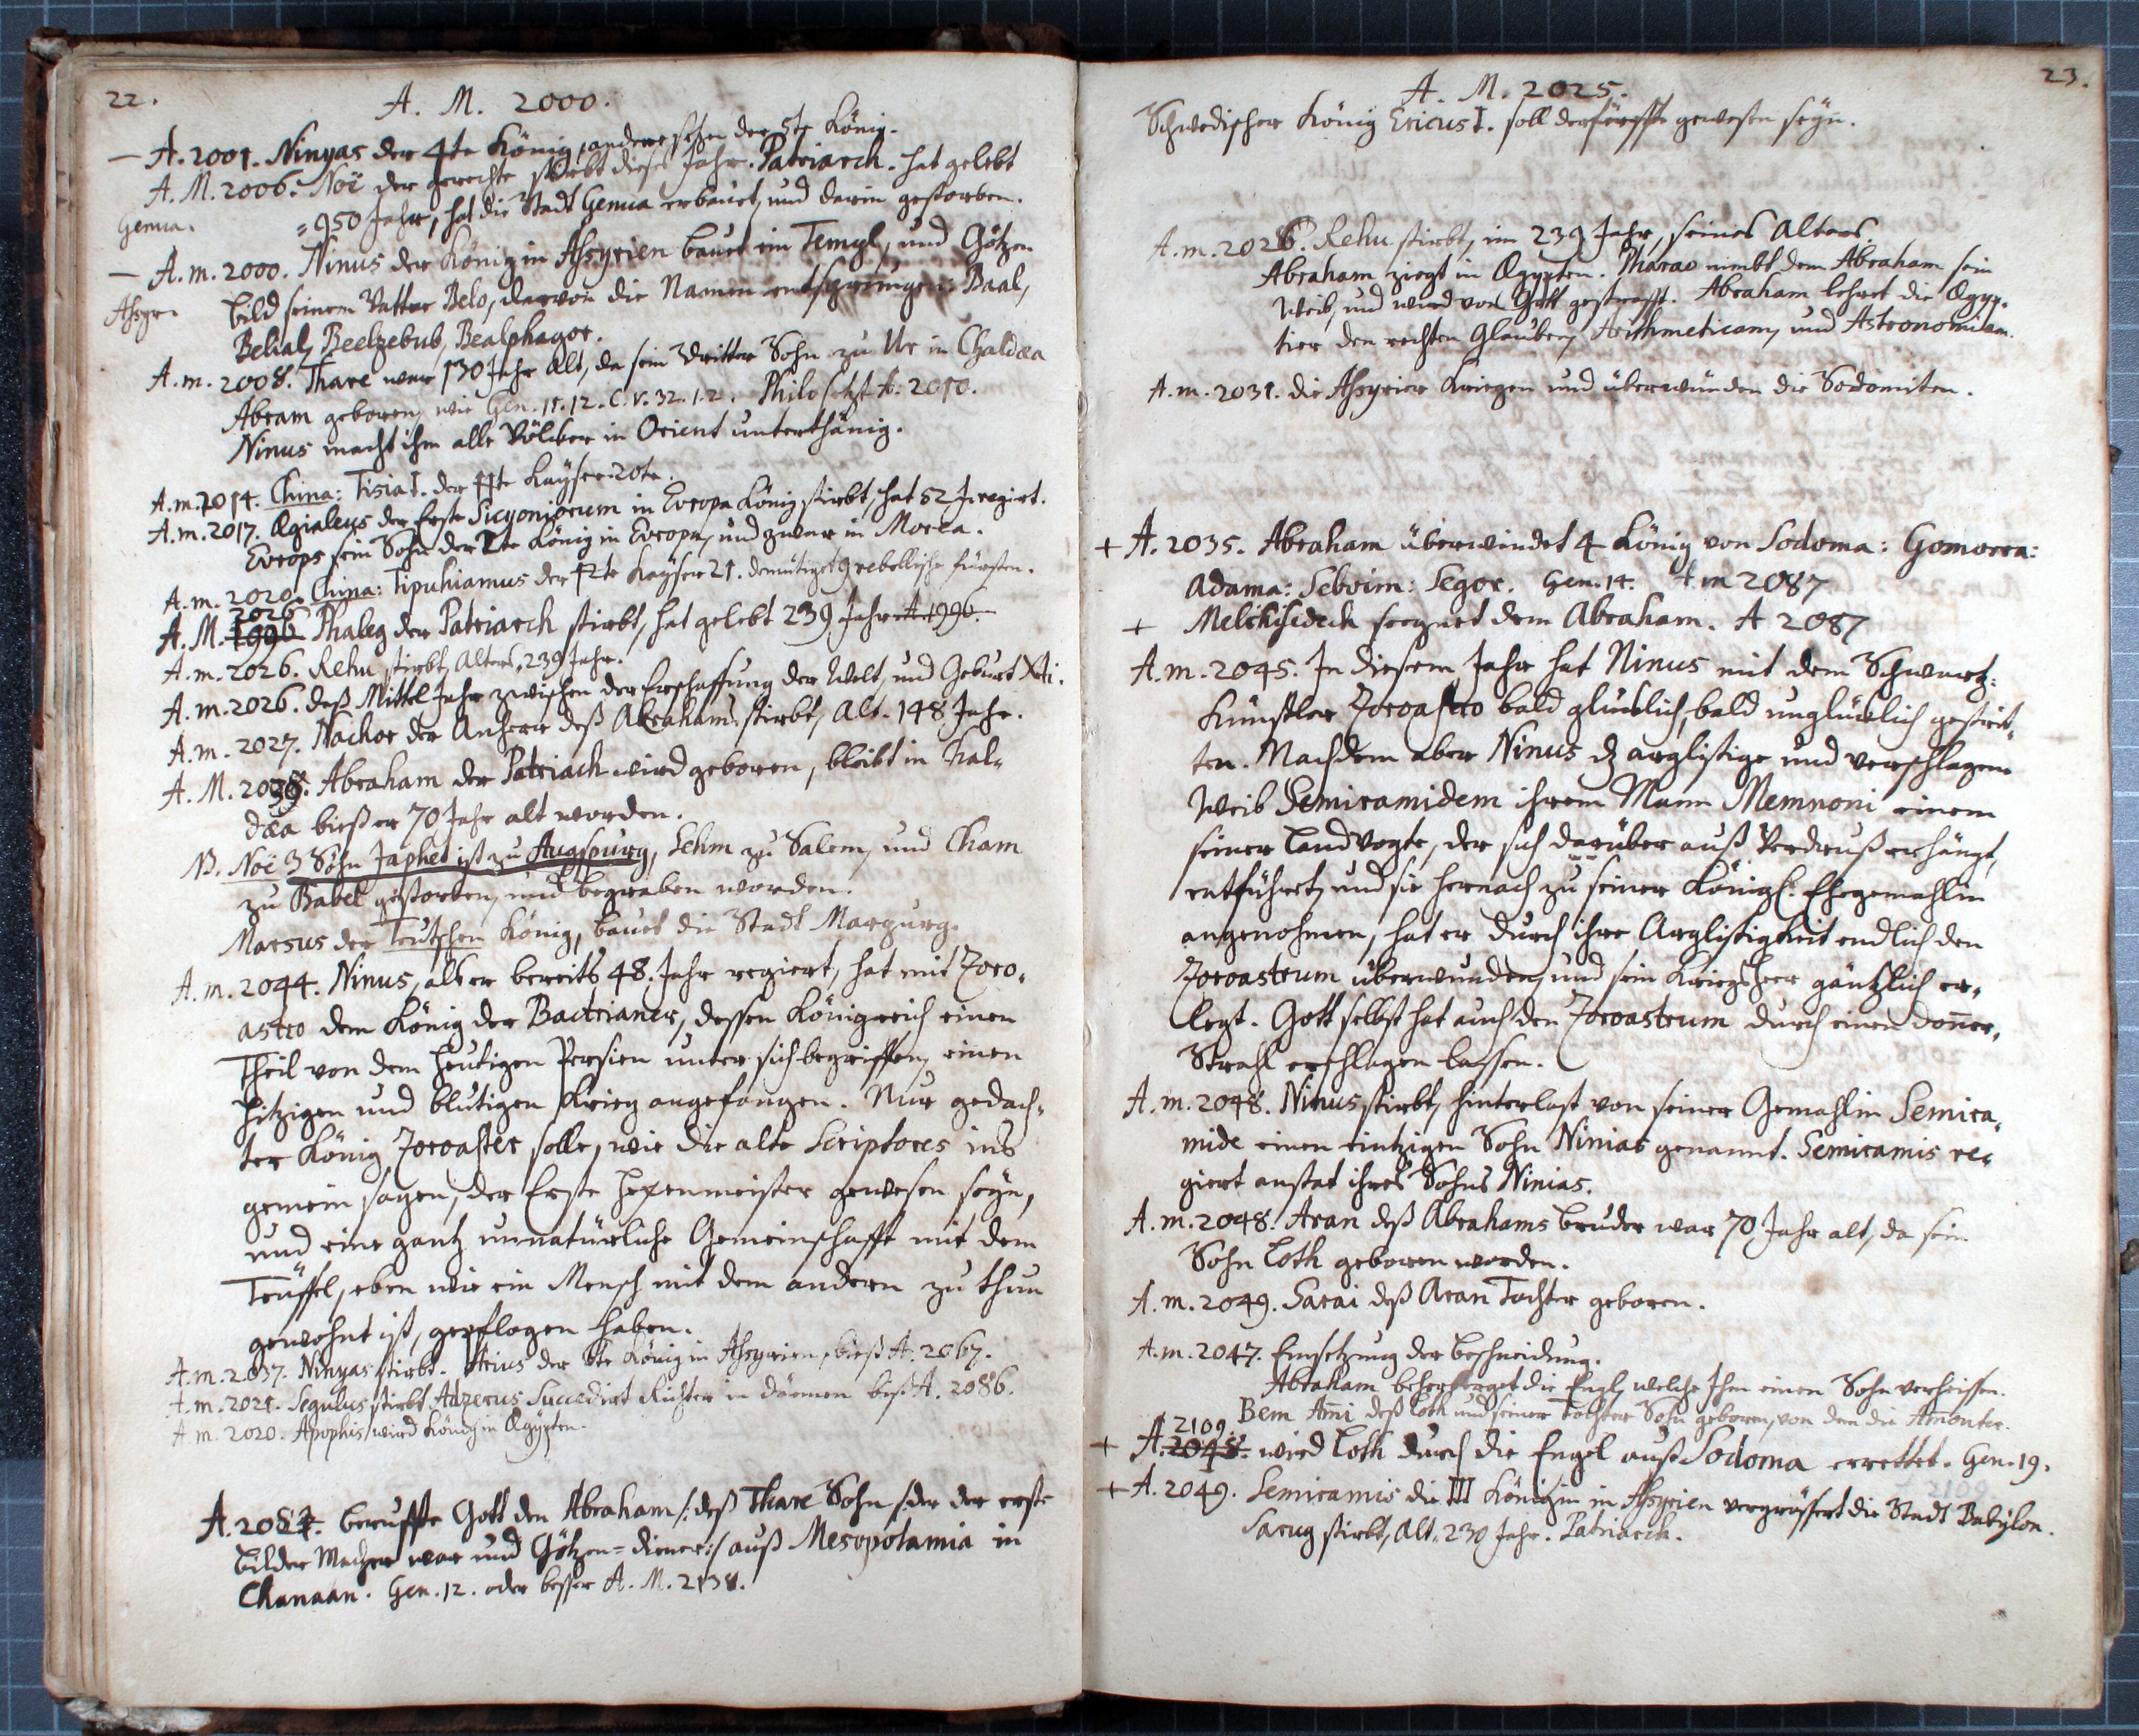 22.
A. M. 2000.
— A. 2001. Ninyas der 4te König, andere setzen der 5te König.
A. M. 2006. Noë der gerechte stirbt dieses Jahr. Patriarch. hat gelebt
Genua. =950 Jahr, hat die Stadt Genua erbauet, und darin gestorben.
— A. m. 2000. Ninus der König in Assyrien bauet ein Templ, und Götzen
Assyr. bild seinem Vatter Belo, darvon die Namen entsprungen: Baal,
Belial, Beelzebub, Bealphagor.
A. m. 2008. Thare war 130 Jahr alt, da sein dritter Sohn zu Ur in Chaldæa
Abram geboren, wie Gen. 11. 12. C. V. 32. 1. 2. Philo setzt A: 2010.
Ninus macht ihm alle Völcker in Orient unterthänig.
A. m. 2014. China: Tisia I. der 11te Kayser 20te.
A. m. 2017. Ægialeus der Erste Sicyoniorum in Evropa König stirbt, hat 52 J. regirt.
Evrops sein Sohn der 2te König in Evropa, und zwar in Morea.
A. m. 2020. China: Tipuhiamus der 12te Kayser 21. demütiget 9 rebellische Fürsten.
2026
A. M. 1996 Phaleg der Patriarch stirbt, hat gelebt 239 Jahr A 1996.
A. m. 2026. Rehu stirbt, Alters, 239 Jahr.
A. m. 2026. deß Mittel Jahr zwischen der Erschaffung der Welt, und Geburt Xti.
A. m. 2027. Nachor der Anherr deß Abrahams stirbt, Alt. 148 Jahr.
A. M. 2039. Abraham der Patriach wird geboren, bleibt in Kal=
dæa bieß er 70 Jahr alt worden.
NB. Noë 3 Söhn Japhet ist zu Augspurg, Sehm zu Salem, und Cham
zu Babel gestorben, und begraben worden.
Marsus der Teutschen König, bauet die Stadt Marpurg.
A. m. 2044. Ninus, als er bereits 48. Jahr regiert, hat mit Zoro=
astro dem König der Bactrianer, dessen Königreich einen
Theil von dem heutigen Persien unter sich begriffen, einen
hitzigen und blutigen Krieg angefangen. Nur gedach=
ter König Zoroaster solle, wie die alte Scriptores ins
gemein sagen, der Erste Hexenmeister gewesen seyn,
und eine gantz unnatürliche Gemeinschafft mit dem
Teüffel, eben wie ein Mensch mit dem andern zu thun
gewohnt ist, gepflogen haben.
A. m. 2037. Ninyas stirbt. Arius der 6te König in Assyrien, bieß A. 2067.
A. m. 2021. Segulus stirbt Adzerus Succedirt Richter in Dännen bieß A. 2086.
A. m. 2020. Apophis wird König in Ægypten.
A. 2083. beruffte Gott den Abraham /: deß Thare Sohn, der der erste
bilder Macher war und Götzen=diener :/ auß Mesopotamia in
Chanaan. Gen. 12. oder besser A. M. 2138.
23.
A. M. 2025.
Schwedischer König Ericus I. soll der förste gewesen seyn.
A. m. 2026. Rehu stirbt, im 239 Jahr, seines Alters.
Abraham ziegt in Ægypten. Pharao nimbt dem Abraham sein
Weib, und wird von Gott gestrafft. Abraham lehret die Ægyp=
tier den rechten Glauben, Arithmeticam, und Astronomiam.
A. m. 2031. die Assyrier Kriegen und überwünden die Sodomiten.
+ A. 2035. Abraham überwindet 4 König von Sodoma: Gomorra:
Adama: Seboim: Segor. Gen. 14. A. m 2087
+ Melchisedech seegnet dem Abraham. A 2087
A. m. 2045. In diesem Jahr hat Ninus mit dem Schwartz=
künstler Zoroastro bald glücklich, bald unglücklich gestrit=
ten. Nachdem aber Ninus dz arglistige und verschlagene
Weib Semiramidem ihrem Mann Memnoni einem
seiner Landvogte, der sich darüber auß Verdruß erhängt,
entführet, und sie hernach zu seiner Königl: Ehegemahlin
angenohmen, hat er durch ihre Arglistigkeit endlich den
Zoroastrum überwunden, und sein Kriegsheer gäntzlich er=
legt. Gott selbst hat auch den Zoroastrum durch einen donner=
Strahl erschlagen lassen.
A. m. 2048. Ninus stirbt, hinterlast von seiner Gemahlin Semira=
mide einen eintzigen Sohn Ninias genannt. Semiramis re=
giert anstat ihres Sohns Ninias.
A. m. 2048. Aran deß Abrahams bruder war 70 Jahr alt, da sein
Sohn Loth geboren worden.
A. m. 2049. Sarai deß Aran Tochter geboren.
A. m. 2047. Einsetzung der beschneidung.
Abraham beherberget die Engl, welche Ihm einen Sohn verheissen.
Bem Ammi deß Loth und seiner Tochter Sohn geboren, von dem die Amoniter.
2109.
+ A. 2048. wird Loth durch die Engel auß Sodoma errettet. Gen. 19.
+ A. 2049. Semiramis die III Königin in Assyrien vergrössert die Stadt Babylon.
Sarug stirbt, Alt. 230 Jahr. Patriarch.